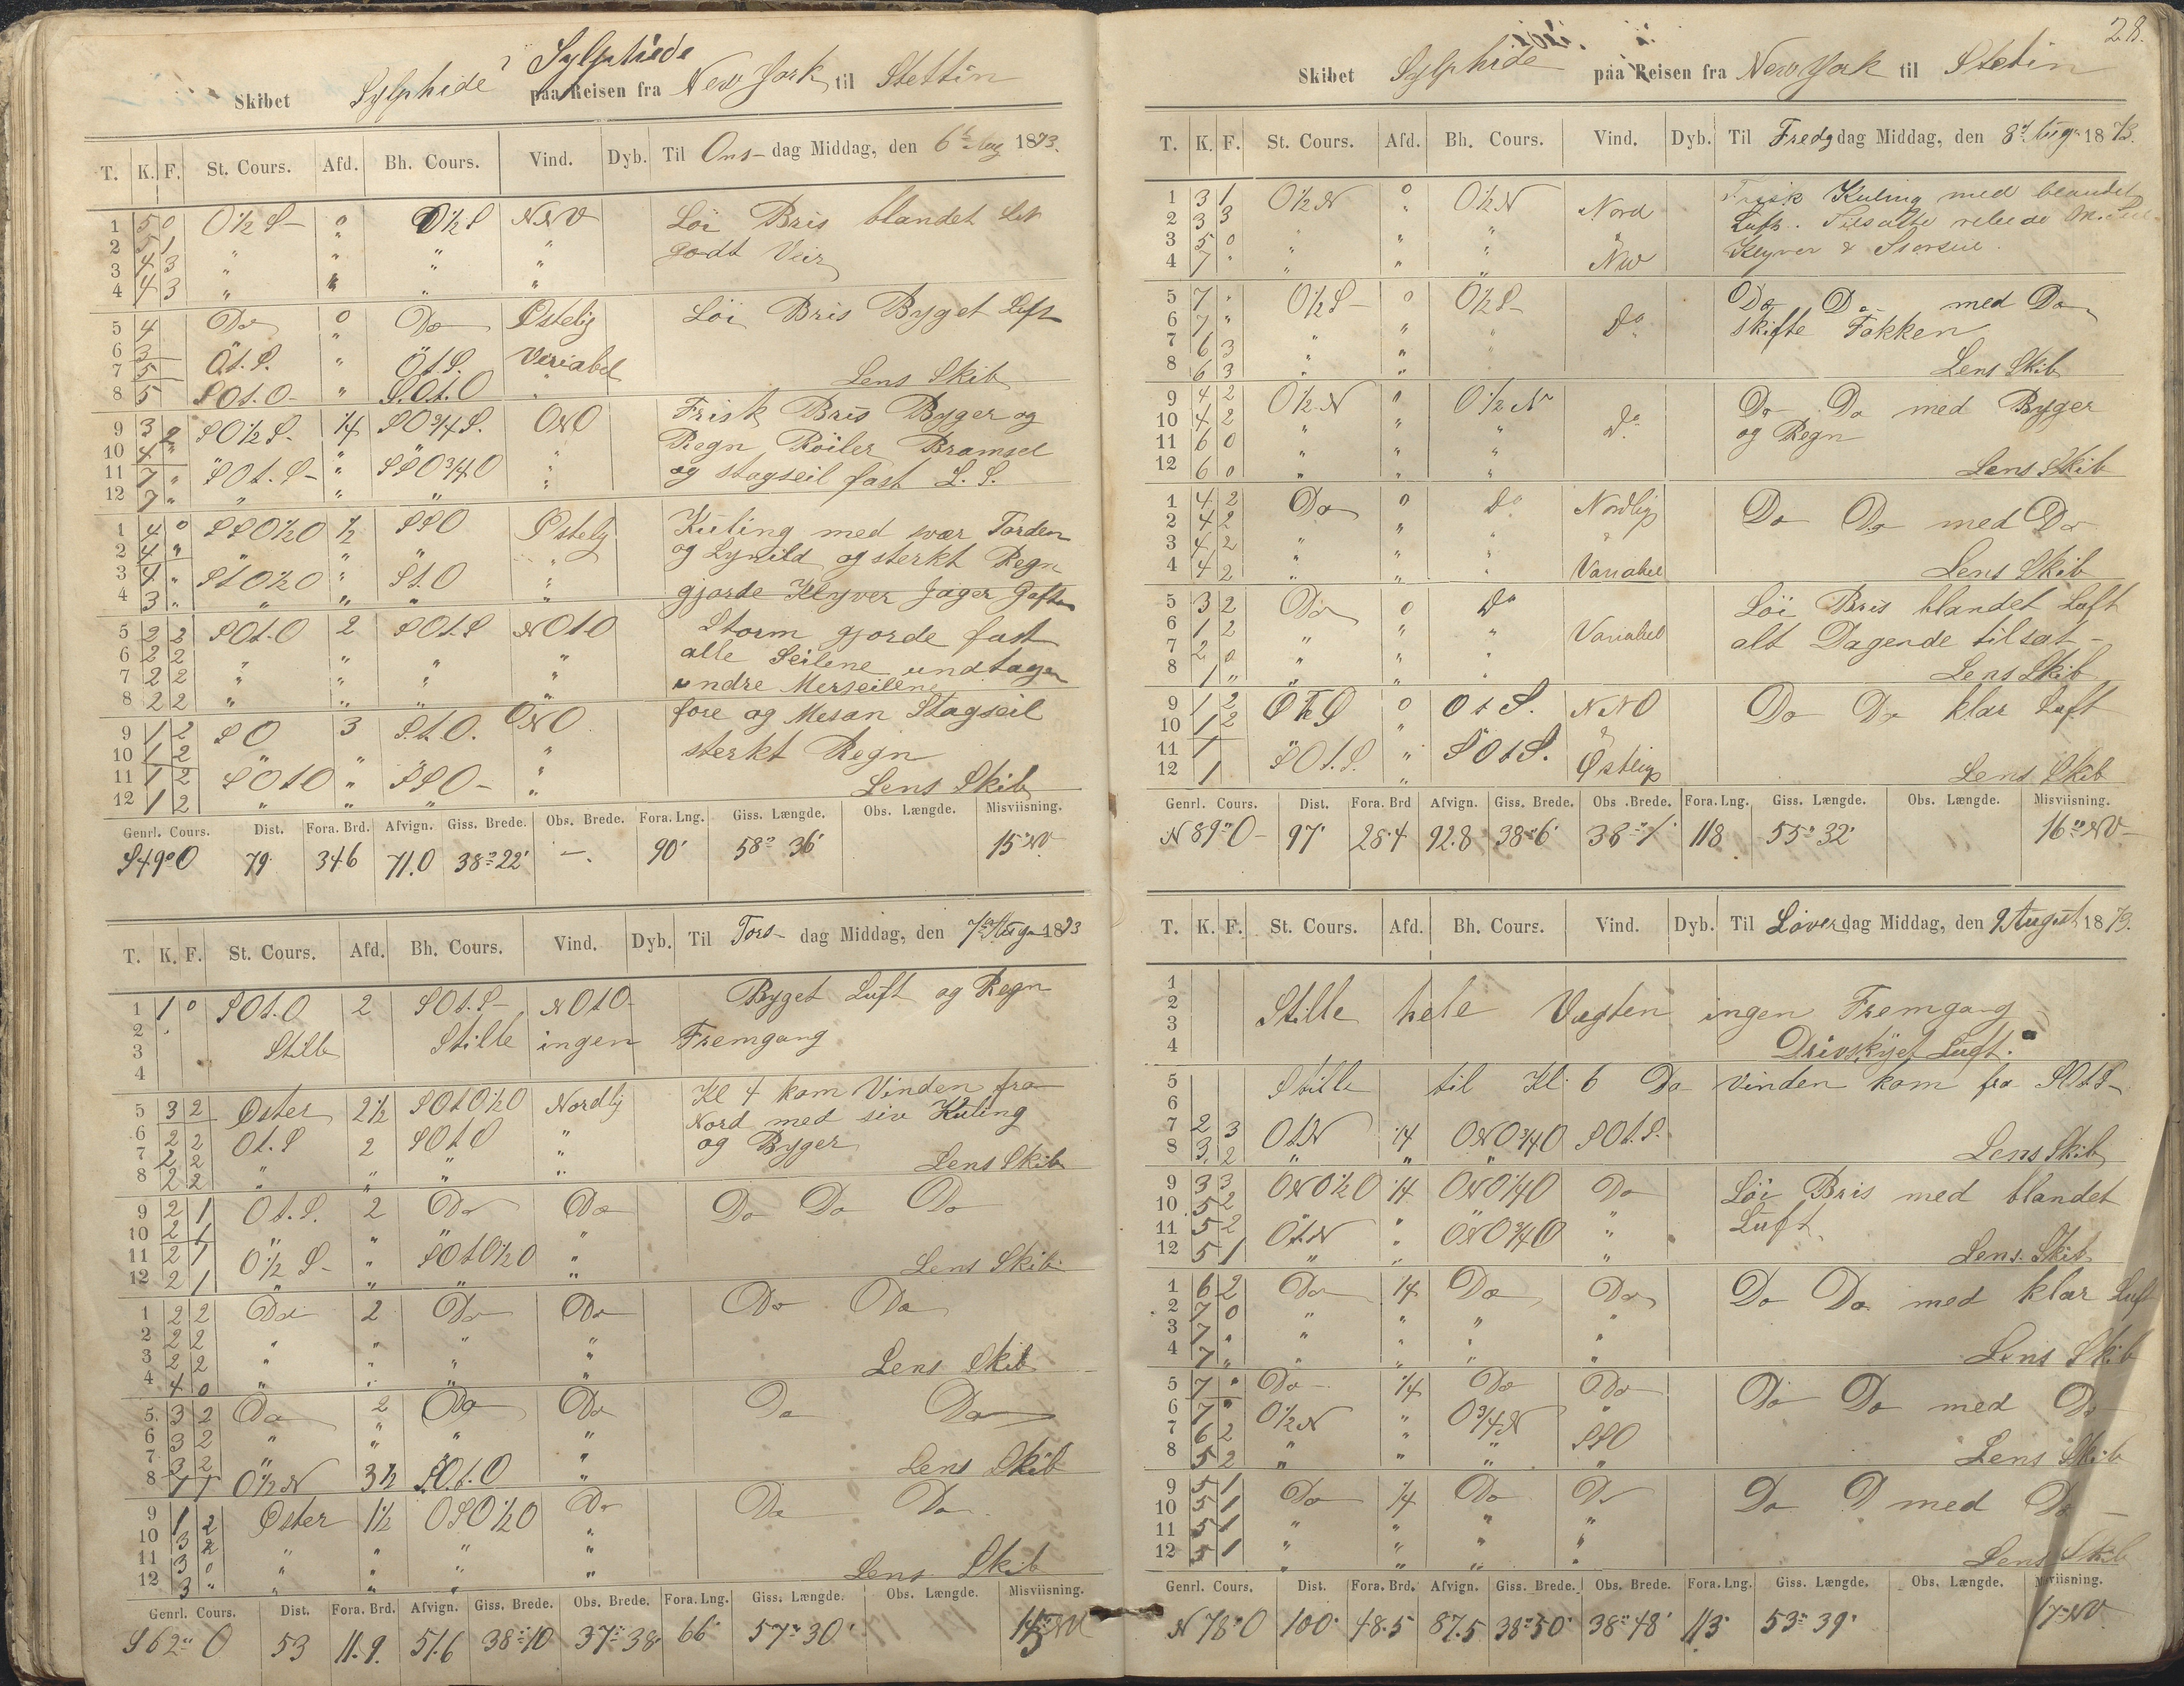 Sylphide
Skibet Sylphide paa Reisen fra New York til Stettin
T. K. F. St. Cours. Afd. Bh. Cours. Vind. Dyb. Til Ons- dag Middag, den 6te Aug 1873.
1 5 0 O½S- 0 O½S NNV Löi Bris blandet Luft
2 5 1 " " " " godt Veir
3 4 3 " " " "
4 4 3 " " " "
5 4 Do 0 Do Østelig Löi Bris Byget Luft
6 3 "
7 5 Ot.S. " Ot.S. Veriabel
8 5 SOt.O- " S.Ot.O " Lens Skib
9 3 2 SO½S- ¼ SO¾S. ONO Frisk Bris Byger og
10 4 " " " " " Regn Röiler Bramsel
11 7 " SOt.S- " SSO¾O " og stagseil fast L.S.
12 7 " " " "
1 4 0 SSO½O ½ SSO Østelig Kuling med svær Torden
2 4 " " " " " og Lynild og sterkt Regn
3 4 " StO½O " St.O "
4 3 " " " " " gjorde Klyver Jager Gaften
5 2 2 SOt.O 2 SOt.S NOtO Storm gjorde fast
6 2 2 " " " " alle Seilene undtagen
7 2 2 " " " " undre Merseilene
8 2 2 " " " "
9 1 2 SO 3 S.t.O. ONO fore og Mesan Stagseil
10 1 2 " " " " sterkt Regn
11 1 2 SOtO " SSO- "
12 1 2 " " " " Lens Skib
Genrl. Cours. Dist. Fora. Brd. Afvign. Giss. Brede. Obs. Brede. Fora. Lng. Giss. Længde. Obs. Længde. Misviisning.
S49°O 79. 34.6 71.0 38°22' -. 90' 58° 36' 15°NV
T. K. F. St. Cours. Afd. Bh. Cours. Vind. Dyb. Til Tors- dag Middag, den 7de Aug 1873
1 1 0 SOt.O 2 SOt.S- NOtO- Byget Luft og Regn
2 Stille Stille ingen Fremgang
3
4
5 3 2 Øster 2½ SOtO½O Nordlig Kl 4 kom Vinden fra
6 2 2 Ot.S 2 SOtS " Nord med siv Kuling
7 2 2 " " " " og Byger
8 2 2 " " " " Lens Skib
9 2 1 Ot.S. 2 Do Do Do Do Do
10 2 1 " " " "
11 2 1 O½S- " SOtO½O "
12 2 1 " " " " Lens Skib
1 2 2 Do 2 Do Do Do Do
2 2 2 " " " "
3 2 2 " " " "
4 4 0 " " " " Lens Skib
5. 3 2 Do 2 Do Do Do Do
6 3 2 " " " "
7 3 2 " "
8 1 1 O½N 3½ SOt.O " Lens Skib
9 1 2 Øster 1½ OSO½O Do Do Do
10 3 2 " " " "
11 3 0 " " " "
12 3 " " " " " Lens Skib
Genrl. Cours. Dist. Fora. Brd. Afvign. Giss. Brede. Obs. Brede. Fora. Lng. Giss. Længde. Obs. Længde. Misviisning.
S62°O 53 11.9. 51.6 38°10 37°38' 66' 57°30'
28.
Skibet Sylphide paa Reisen fra New York til Stetin
T. K. F. St. Cours. Afd. Bh. Cours. Vind. Dyb. Til Fredg dag Middag, den 8de Aug 1873.
1 3 1 O½N 0 O½N Nord Frisk Kuling med blandet
2 3 3 " Luft.
3 5 0 " " " " Klyver & Storseil.
4 7 " " " " NW
5 7 " O½S- 0 O½S- Do Do Do med Do
6 7 " " " skifte Fokken
7 6 3 " " "
8 6 3 " " " Lens Skib
9 4 2 O½N 0 O½N Do Do Do med Byger
10 4 2 " " " og Regn
11 6 0 " " "
12 6 0 " " " Lens Skib
1 4 2 Do 0 Do Nordlig Do Do med Do
2 4 2 " "
3 4 2 " " "
4 4 2 " " " Variabel Lens Skib
5 3 2 Do 0 Do Löi Bris blandet Luft
6 1 2 " " " Variabel alt Dagende tilsat-
7 2 0 " " "
8 1 " " " Lens Skib
9 1 2 OtS 0 OtS. NNO Do Do klar Luft
10 1 2 "
11 1 SOt.S. " SOtS. Østlig
12 1 " Lens Skib
Genrl. Cours. Dist. Fora. Brd Afvign. Giss. Brede. Obs. Brede. Fora. Lng. Giss. Længde. Obs. Længde. Misviisning.
N89°O- 97' 28.4 92.8 38°6' 38°1' 118 55°32' 16°NV-
T. K. F. St. Cours. Afd. Bh. Cours. Vind. Dyb. Til Löver dag Middag, den 9 August 1873.
1
2 Stille hele Vagten ingen Fremgang
3
4 Drivskyet Luft.
5 Stille til Kl. 6 Do Vinden kom fra SOtS-
6
7 2 3 OtN ¼ ONO¾O SOt.S.
8 3 2 " " " Lens Skib
9 3 3 ONO½O ¼ ONO¼O Do Löi Bris med blandet
10 5 2 Luft.
11 5 2 OtN " ONO¾O "
12 5 1 " " " Lens Skib
1 6 2 Do ¼ Do Do Do Do med klar Luft
2 7 0 " " " "
3 7 " " " " "
4 7 " " " " " Lens Skib
5 7 " Do ¼ Do Do Do Do med Do
6 7 " O½N " O¾N "
7 6 2 " " " SSO
8 5 2 " " " " Lens Skib
9 5 1 Do ¼ Do Do Do D med Do
10 5 1 " " " "
11 5 1 " " " "
12 5 1 " " " " Lens Skib
Genrl. Cours. Dist. Fora. Brd. Afvign. Giss. Brede. Obs. Brede. Fora. Lng. Giss. Længde. Obs. Længde. Misviisning.
N78°O 100' 48.5 87.5 38°50' 38°48' 113' 53°39' 17°NV